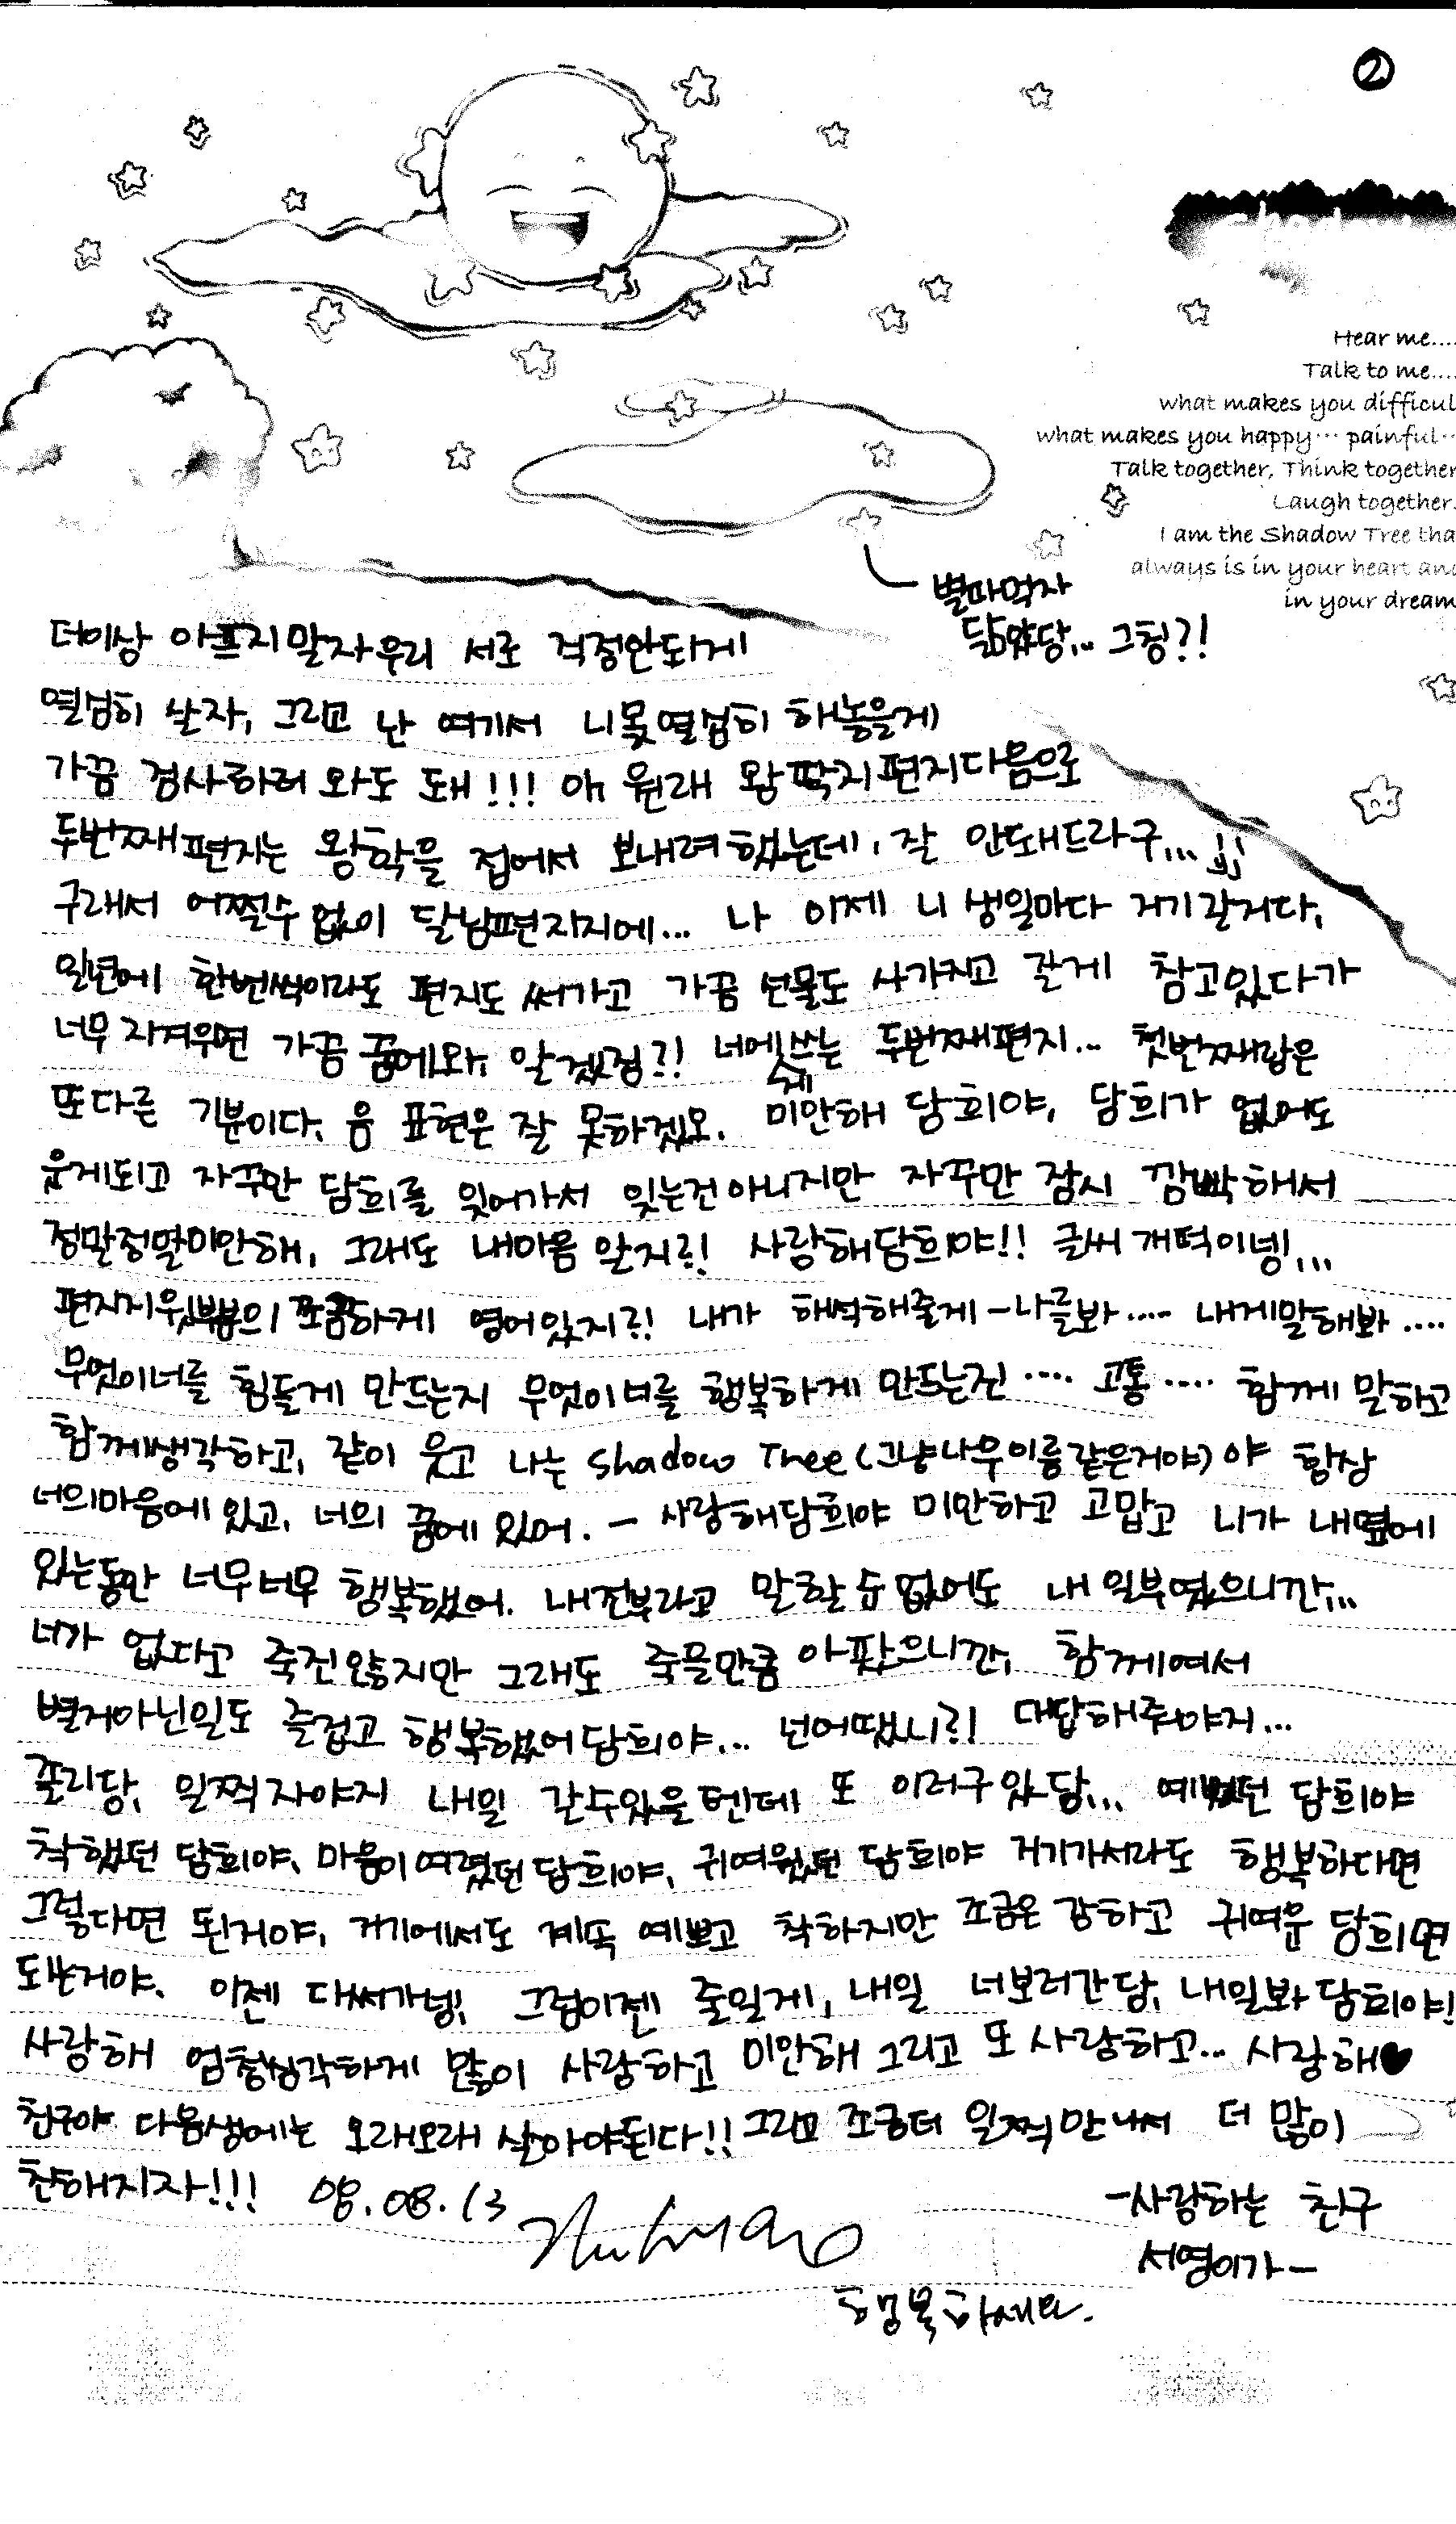 ②
Hear me....
Talk to me....
what makes you difficul
what makes you happy... painful..
Talk together, Think together
Laugh together.
I am the Shadow Tree tha
always is in your heart and
in your dream
별따먹자
닮았당... 그칭?!
더이상 아프지말자우리 서로 걱정안되게
열심히 살자, 그리고 난 여기서 니몫열심히 해놓을게
가끔 검사하러 와도 돼!!! 아, 원래 왕딱지편지다음으로
두번째편지는 왕학을 접어서 보내려했는데, 잘 안돼드라구...
구래서 어쩔수없이 달님편지지에... 나 이제 니 생일마다 거기갈거다,
일년에 한번씩이라도 편지도 써가고 가끔 선물도 사가지고 갈게 참고있다가
너무 지겨우면 가끔 꿈에와, 알겠징?! 너에게쓰는 두번째편지... 첫번째랑은
또다른 기분이다, 음 표현은 잘 못하겠오. 미안해 담희야, 담희가 없어도
웃게되고 자꾸만 담희를 잊어가서 잊는건아니지만 자꾸만 잠시 깜빡해서
정말정말미안해, 그래도 내마음 알지?! 사랑해담희야!! 글씨개떡이넹!...
편지지윗부분의 쪼끔하게 영어있지?! 내가 해석해줄게 -나를봐.... 내게말해봐....
무엇이너를 힘들게 만드는지 무엇이너를 행복하게 만드는진.... 고통.... 함께 말하고
함께생각하고, 같이 웃고 나는 Shadow Tree (그냥나무이름같은거야)야 항상
너의마음에 있고, 너의 꿈에 있어. - 사랑해담희야 미안하고 고맙고 니가 내옆에
있는동안 너무너무 행복했어. 내전부라고 말할 수 없어도 내 일부였으니깐...
너가 없다고 죽진않지만 그래도 죽을만큼 아팠으니깐, 함께여서
별거아닌일도 즐겁고 행복했어담희야... 넌어땠니?! 대답해주야지...
졸리당, 일찍자야지 내일 갈수있을텐데 또 이러구있당... 예뻤던 담희야
착했던 담희야, 마음이여렸던담희야, 귀여웠던 담희야 거기가서라도 행복하다면
그렇다면 된거야, 거기에서도 계속 예쁘고 착하지만 조금은 강하고 귀여운 담희면
되는거야. 이젠 다써가넹, 그럼이젠 줄일게, 내일 너보러간당, 내일봐 담희야!
사랑해 엄청심각하게 많이 사랑하고 미안해 그리고 또 사랑하고... 사랑해♥
친구야 다음생에는 오래오래 살아야된다!! 그리고 조금더 일찍만나서 더 많이
친해지자!!! 08.08.13
-사랑하는 친구
서영이가-
행복하세요.